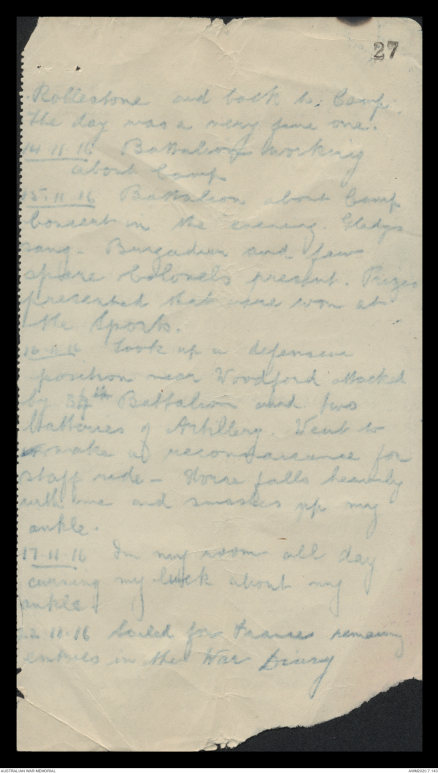 27
Rollestone and back to Camp.
The day was a very fine one.
14.11.16 Battalion working
about Camp
15.11.16 Battalion about Camp
Concert in the evening. Gladys
sang. Brigadier and few
spare Colonels present. Prizes
presented that were won at
the Sports.
16.11.16 Took up a defensive
position near Woodford attacked
by Battalion and two
Batteries of Artillery. Went to
make a reconnaissance for
staff ride – Horse falls heavily
with me and smashes up my
ankle.
17.11.16 In my room all day
cursing my luck about my
ankle
22.11.16 Sailed for France remaining
entries in the War Diary
AUSTRALIAN WAR MEMORIAL